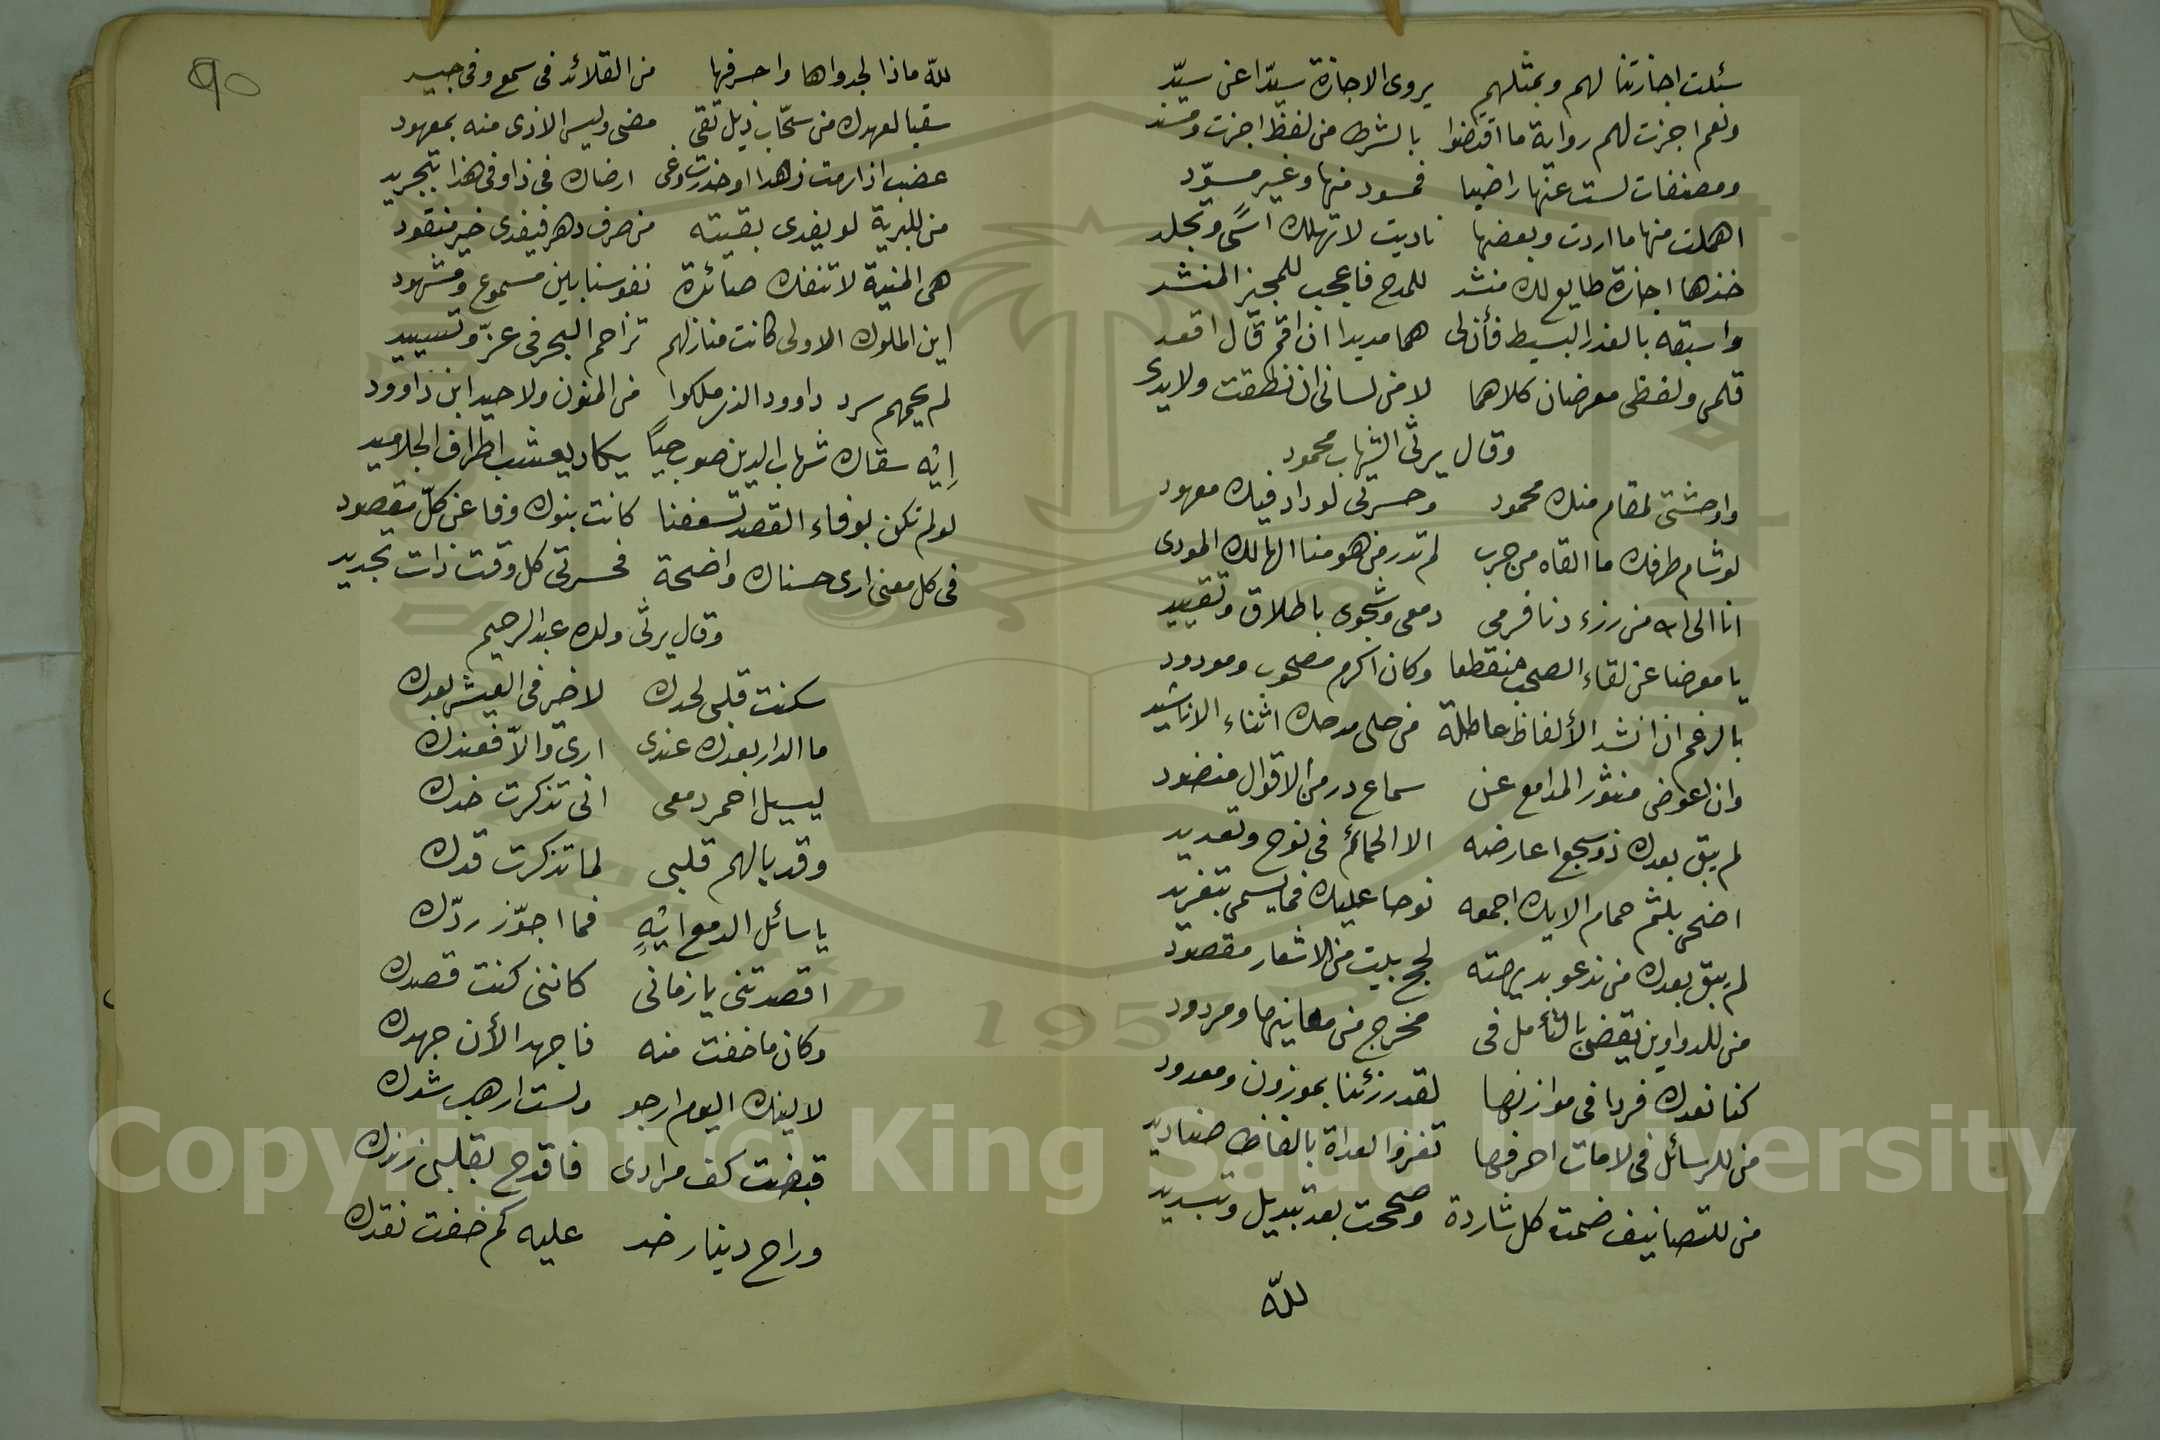 سئلت اجازتنا لهم وبمثلهم يروى الاجازة سيّدا عن سيّد
ونعم اجزت لهم رواية ما اقتضوا بالشرط من لفظ اجزت ومسند
ومصنفات لست عنها راضيا فمسود منها وغير مسوّد
اهملت منها ما اردت وبعضها ناديت لا تهلك اسًى وتجلد
خذها اجازة طايع لك منشد للمدح فاعجب للمجيز المنشد
واسبقه بالعذر البسيط فأن لى هما مديدا ان اقم قال اقعد
قلمى ولفظى معرضان كلاهما لا من لسانى ان نطقت ولا يدى
وقال يرثى الشهاب محمود
واوحشتى لمقام منك محمود وحسرتى لوداد فيك معهود
لو شام طرفك ما القاه من حرب لم تدر من هو منا الهالك المودى
انا الى الله من رزء دنا فرمى دمعى وشجوى باطلاق وتقييد
يا معرضا عن لقاء الصحب منقطعا وكان اكرم مصحوب ومودود
بالرغم ان انشد الألفاظ عاطلة من حلى مدحك اثناء الاناشيد
وان اعوض منثور المدامع عن سماع در من الاقوال منضود
لم يبق بعدك ذو سجع اعارضه الا الحمائم فى نوح وتعديد
اضحى بلثم حمام الايك اجمعه نوحا عليك فما يسمى بتغريد
لم يبق بعدك من ندعو بديهته لحج بيت من الاشعار مقصود
من للدواوين يقضى بالتأمل فى مخرج من معانيها ومردود
كنا نعدك فردا فى موازنها لقد رزئنا بموزون ومعدود
من للرسائل فى لامات احرفها تغزو العداة بالفاظ صناديد
من للتصانيف ضمت كل شاردة وصححت بعد تبديل وتبديد
لله
90
لله ماذا لجدواها واحرفها من القلائد فى سمع وفى جيد
سقيا لعهدك من سحّاب ذيل تقى مضى وليس الاذى منه بمعهود
عضب اذا رمت زهدا او حذرت وغى ارضاك فى ذا وفى هذا بتجريد
من للبرية لو يفدى بقيته من صرف دهر فيفدى خير منقود
هى المنية لا تنفك صائدة نفوسنا بين مسموع ومشهود
اين الملوك الاولى كانت منازلهم تزاحم البحر فى عزّ وتسييد
لم يحمهم سرد داوود الذى ملكوا من المنون ولا حيد ابن داوود
اِيْه سقاك شهاب الدين صوب حيًا يكاد يعشب اطراف الجلاميد
لو لم تكن بوفاء القصد تسعفنا كانت بنوك وفا عن كلّ مقصود
فى كل معنى ارى حسناك واضحة فحسرتى كل وقت ذات تجديد
وقال يرثى ولده عبد الرحيم
سكنت قلبى لحدك لا خير فى العيش بعدك
ما الدار بعدك عندى ارى والاّ فعندك
ليسيل احمر دمعى انى تذكرت خدك
وقد بالهم قلبى لما تذكرت قدك
يا سائل الدمع ايهٍ فما اجوّز ردّك
اقصدتنى يا زمانى كاننى كنت قصدك
وكان ما خفت منه فاجهد الأن جهدك
لا لينك اليوم ارجو ولست ارهب شدك
قبضت كف مرادى فاقدح بقلبى زندك
وراح دينار خد عليه كم خفت نقدك
Copyright © King Saud University
1957